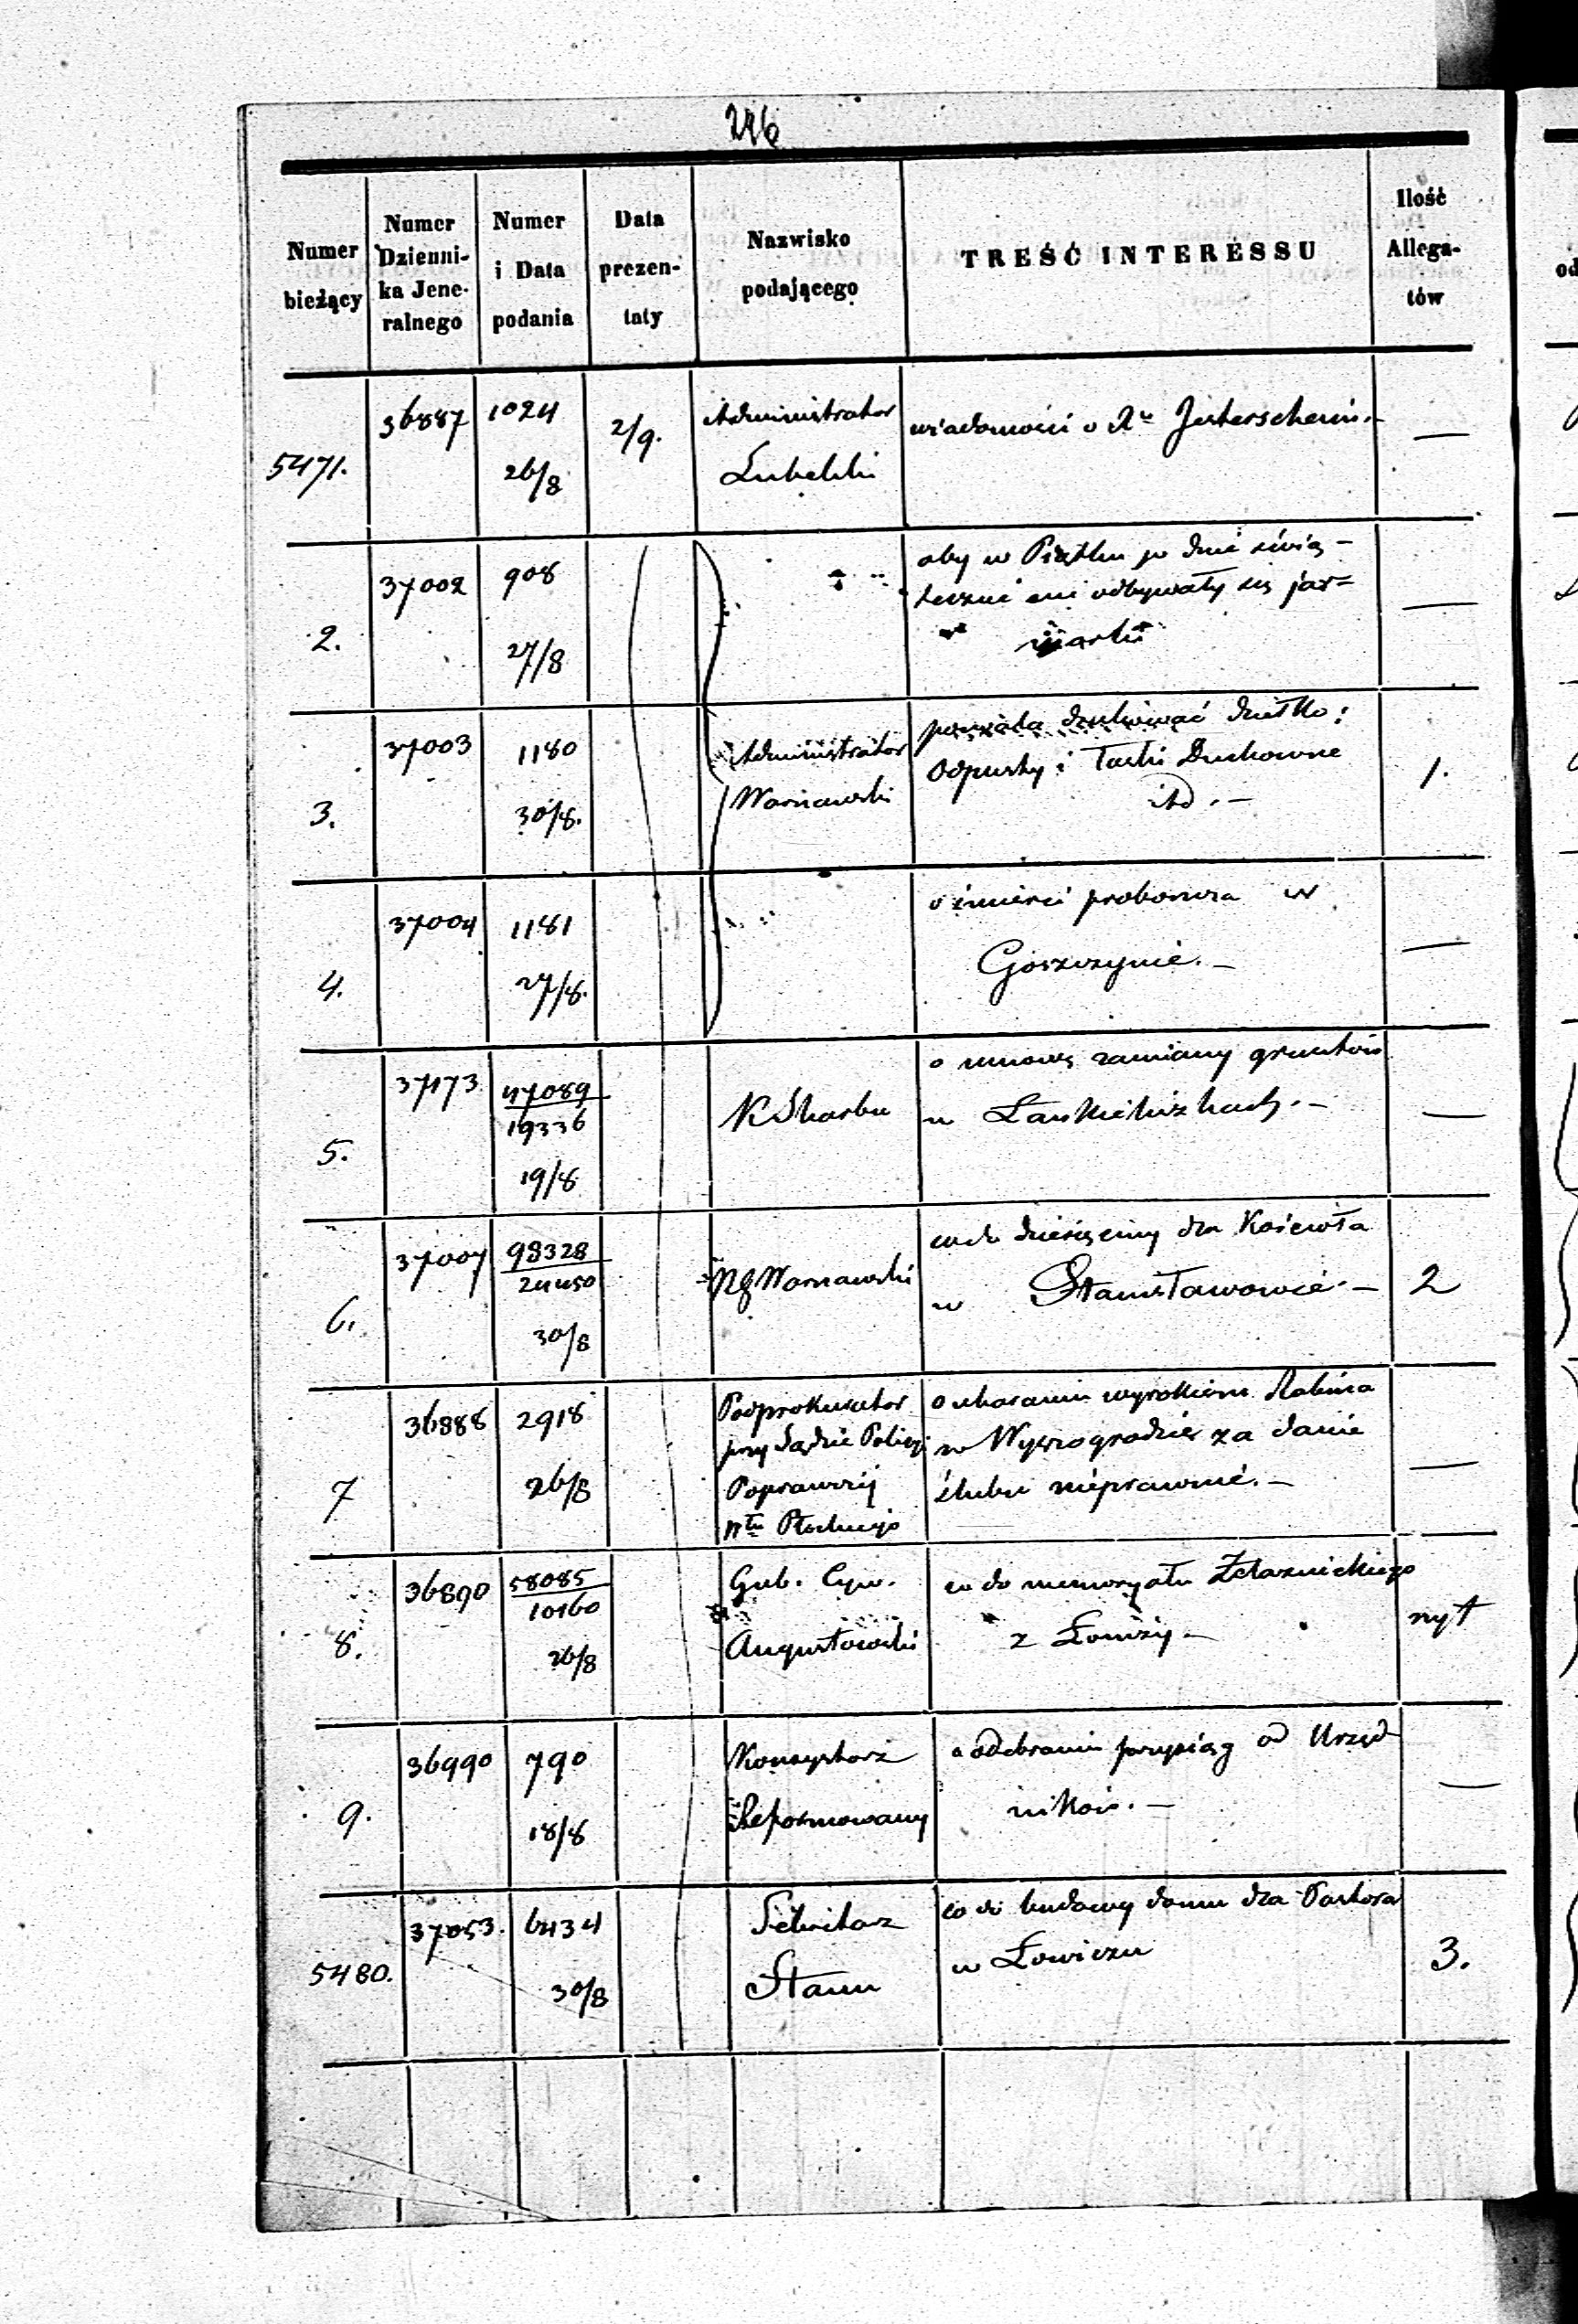 Numer bieżący
Numer Dzienni-ka Jene-ralnego
Numer i Data podania
Data prezen-taty
Nazwisko podającego
TREŚĆ INTERESSU
Ilość Allega-tów
5471. 36887 1024 26/8 2/9. Administrator Lubelski
wiadomości o
—
2. 37002 908 27/8
aby w Piątku po dnie świą-
teczne nie odbywały się jar-
marki
—
3. 37003 1180 30/8. Administrator Warszawski
pozwala drukować dziełko:
Odpusty i Łaski Duchowne
itd. —
1.
4. 37004 1181 27/8.
o śmierci proboszcza w
Goszczynie. —
—
5. 37173 47089/19336 19/8 K Skarbu
o umowę zamiany gruntów
w
—
6. 37007 98328/24450 30/8 Rg Warszawski
co do dziesięciny dla Kościoła
w Stanisławowie. —
2
7 36888 2918 26/8
Podprokurator
przy Sądzie Policyi
Poprawczéj
Płockiego
o ukaraniu wyrokiem Rabina
w Wyszogrodzie za danie
ślubu nieprawnie. —
—
8. 36890 58085/10160 26/8 Gub. Cyw. Augustowski
co do memoryału Żelaznickiego
z Łomży —
9. 36990 790 18/8 Konsystorz Reformowany
o odebraniu przysiąg od Urzęd
ników. —
—
5480. 37053. 6434 30/8 Sekretarz Stanu
co do budowy domu dla Pastora
w Łowiczu
3.